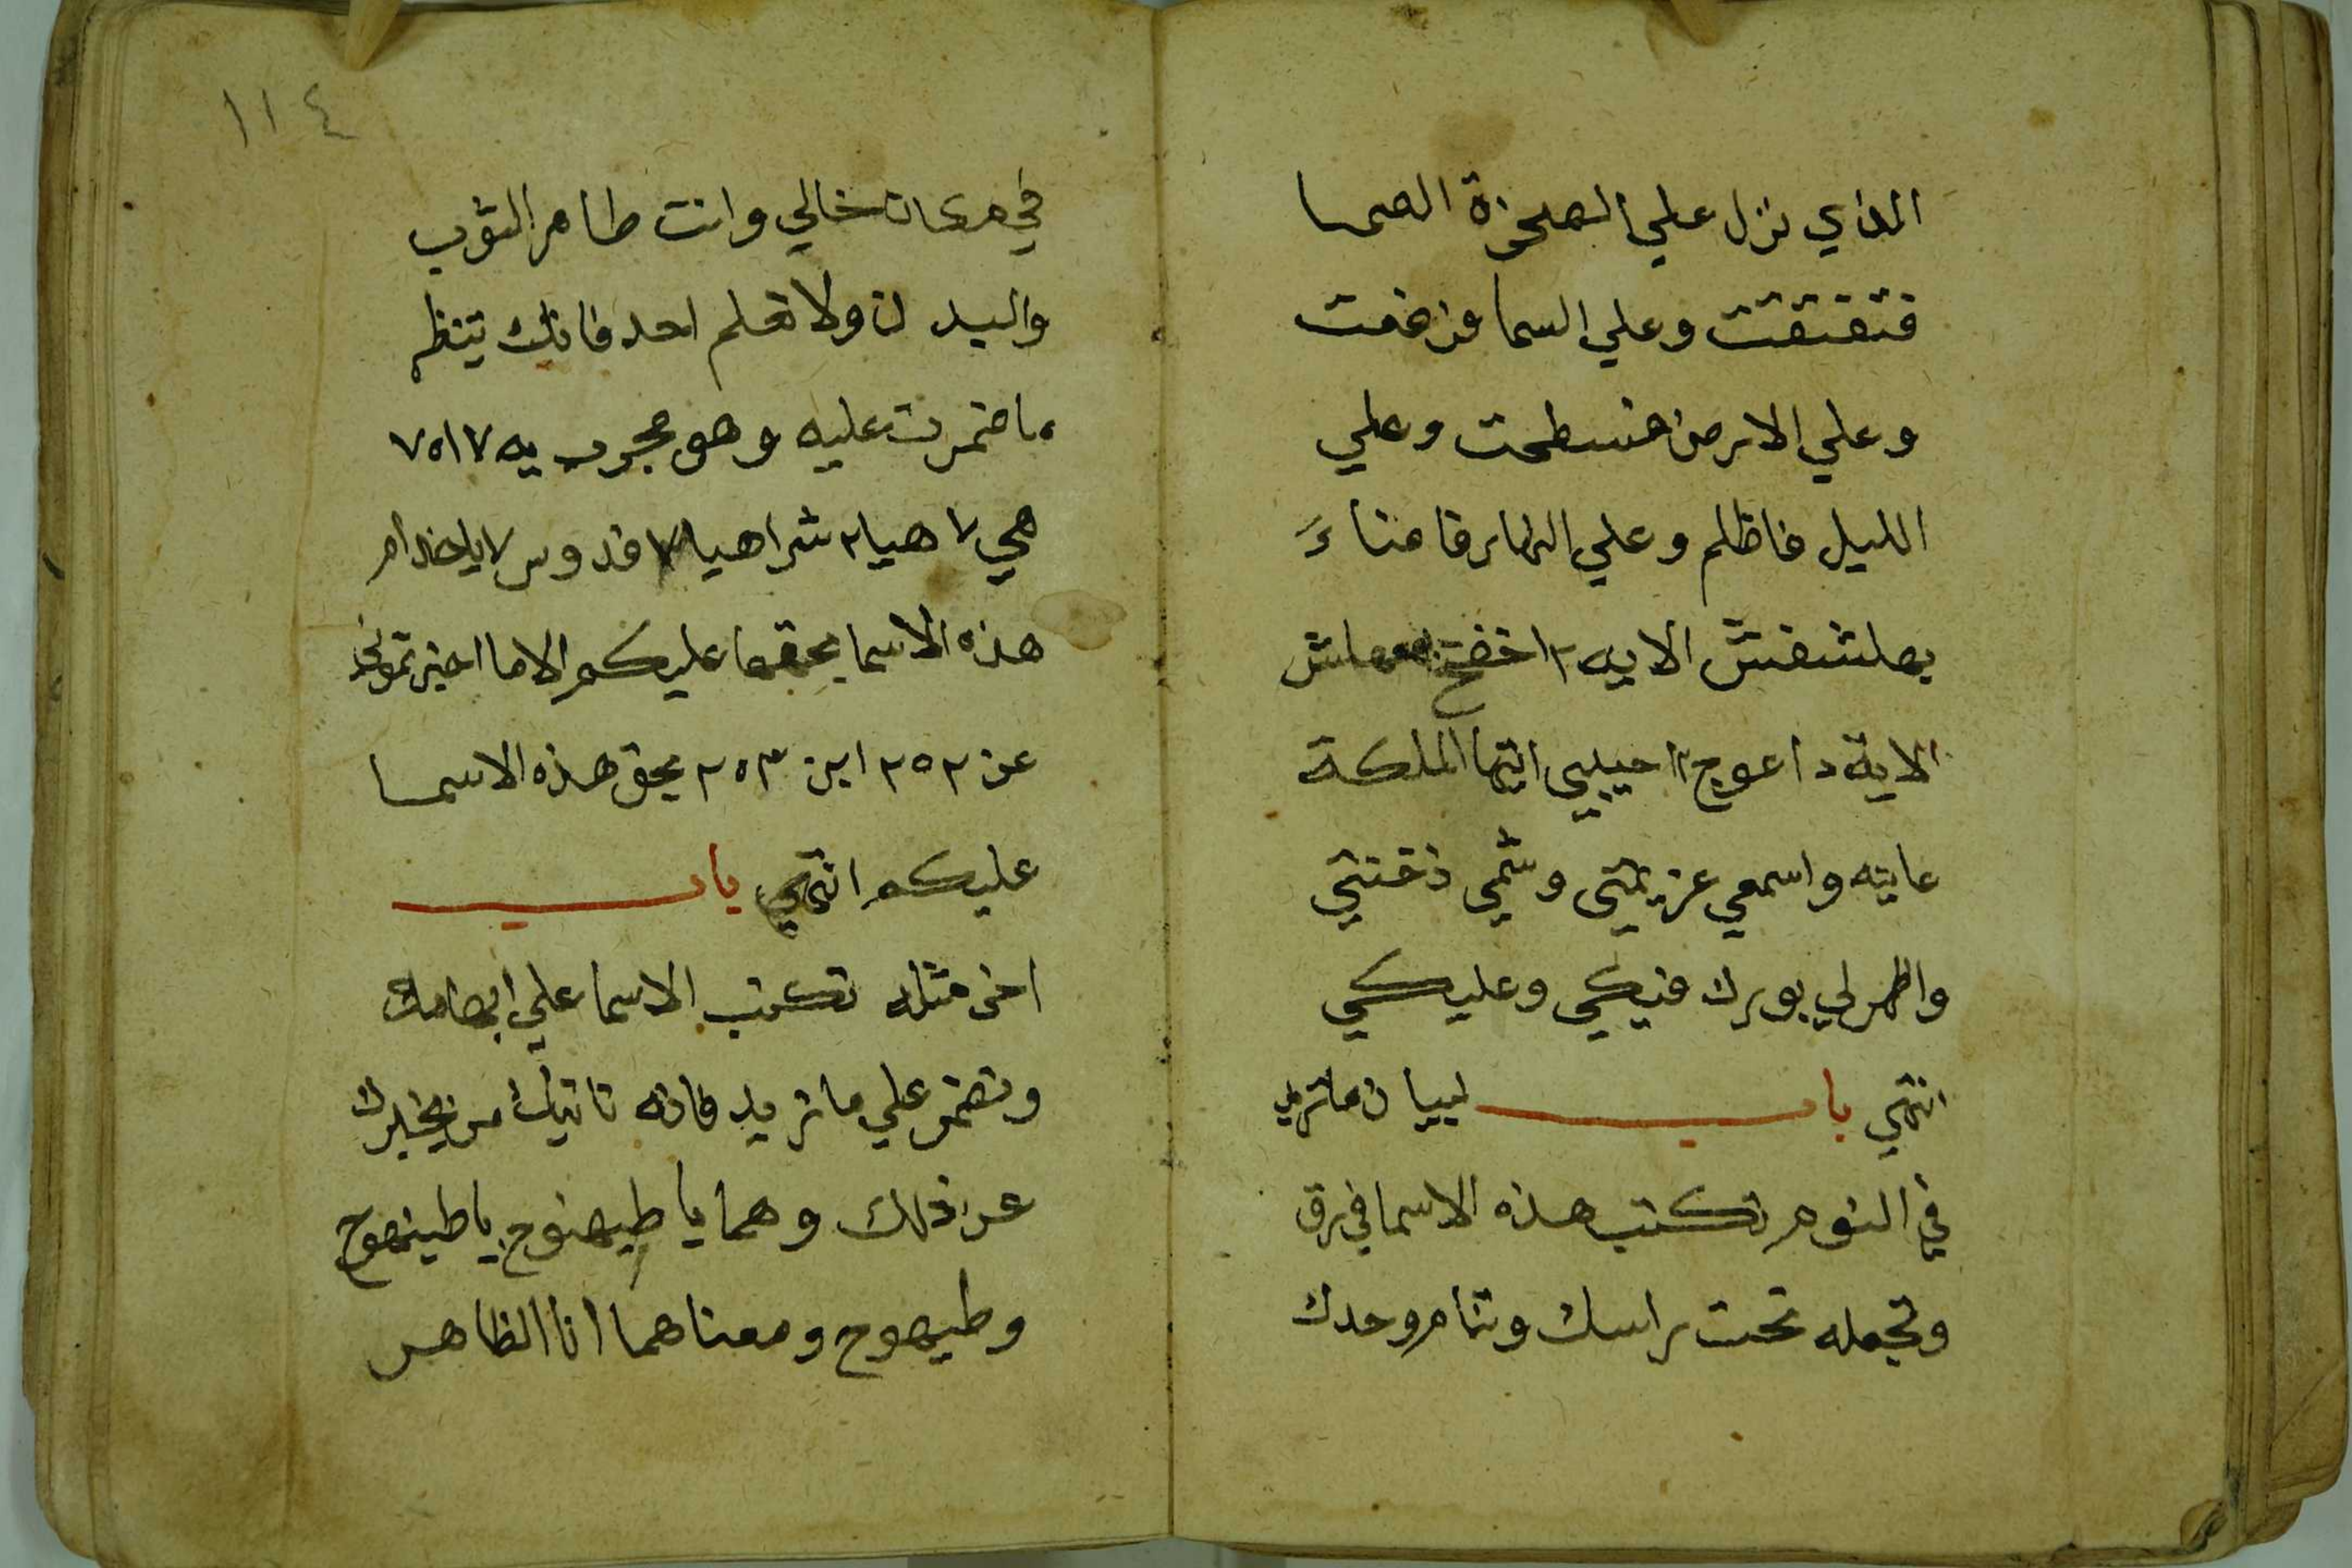 الذي نزل علي الصخرة الصما
فتفتقتت وعلي السما فرفعت
وعلي الارض فسطحت وعلي
الليل فاظلم وعلي النهار فاضاء
بهلشفتش الايه ٢ اخضع بهلش
الاية داعوج ٢ اجيبي ايتها الملكة
عاينه واسمعي عزيمتي وشمي دخنتي
واظهر لي بورك فيكي وعليكي
انتهي باب لبيان ماتريد
في النوم تكتب هذه الاسما في رق
وتجعله تحت راسك وتنام وحدك
١١٤
في مكان خالي وانت طاهر الثوب
والبدن ولا تعلم احد فانك تنظر
ماضمرت عليه وهو مجرب يه ٧ اه ٧
هي ٧ اهيا ٢ شراهيا ٧ قدوس ٧ ياخدام
هذه الاسما بحقها عليكم الاما اخبرتموني
عن ٢٥٢ ابن ٢٥٣ بحق هذه الاسما
عليكم انتهي باب
اخر مثله تكتب الاسما علي ابهامك
وتضمر علي ماتريد فانه تاتيك من يخبرك
عن ذلك وهما ياطيهوج ياطينهوج
وطيهوج ومعناهما انا الظاهر